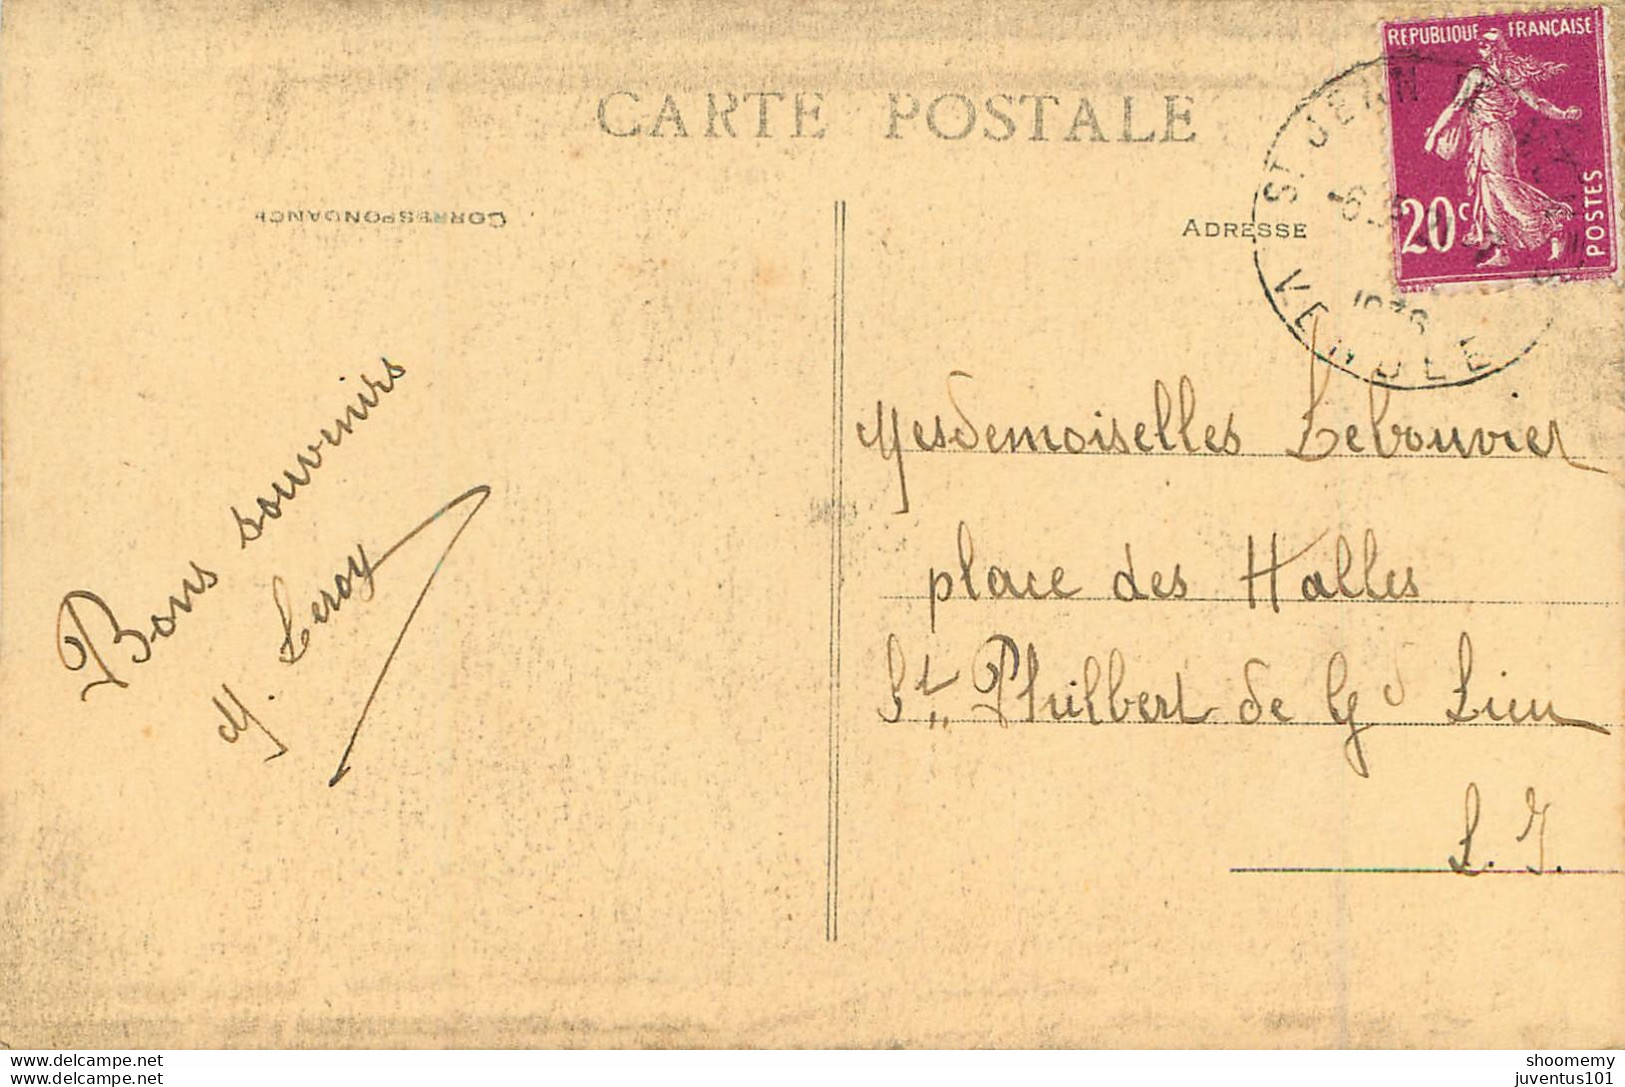 CARTE POSTALE
CORRESPONDANCE
ADRESSE
REPUBLIQUE FRANÇAISE
20c
POSTES
ST JEAN DE
VENDEE
Bons souvenirs
M. Leroy
Mesdemoiselles Lebouvier
place des Halles
St. Philbert de Gd Lieu
L. I.
shoomemy
Lecraemy.net
Lecraemy.net
juventus101